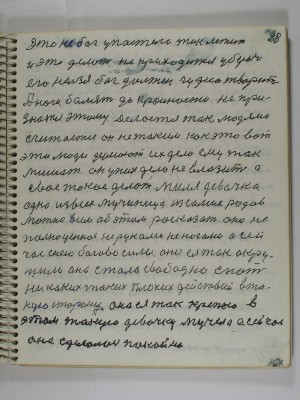 98
это не бог упаси тело так лежит
и это делот не приходится убрач
его нельзя бог должен чудеса творит
А нога болят до крайности не при-
знали этому делоется так модлии
считается он не таким как это вот
эти люди думают их дело ему так
мишат. он у них дело не влазит а
свое токое делот. Миля девочка
одна из всех мучиница из самих родов
можно вам об этом росказат она не
полноценная не руками не ногами а сей
час с нею богово силы, она ся так окру-
жило она стала свободно спат
ни каких таких плохих действий в та-
кую сторону, она ся так крепко в
этом такую девочку мучела а сейчас
она сделолас покойно